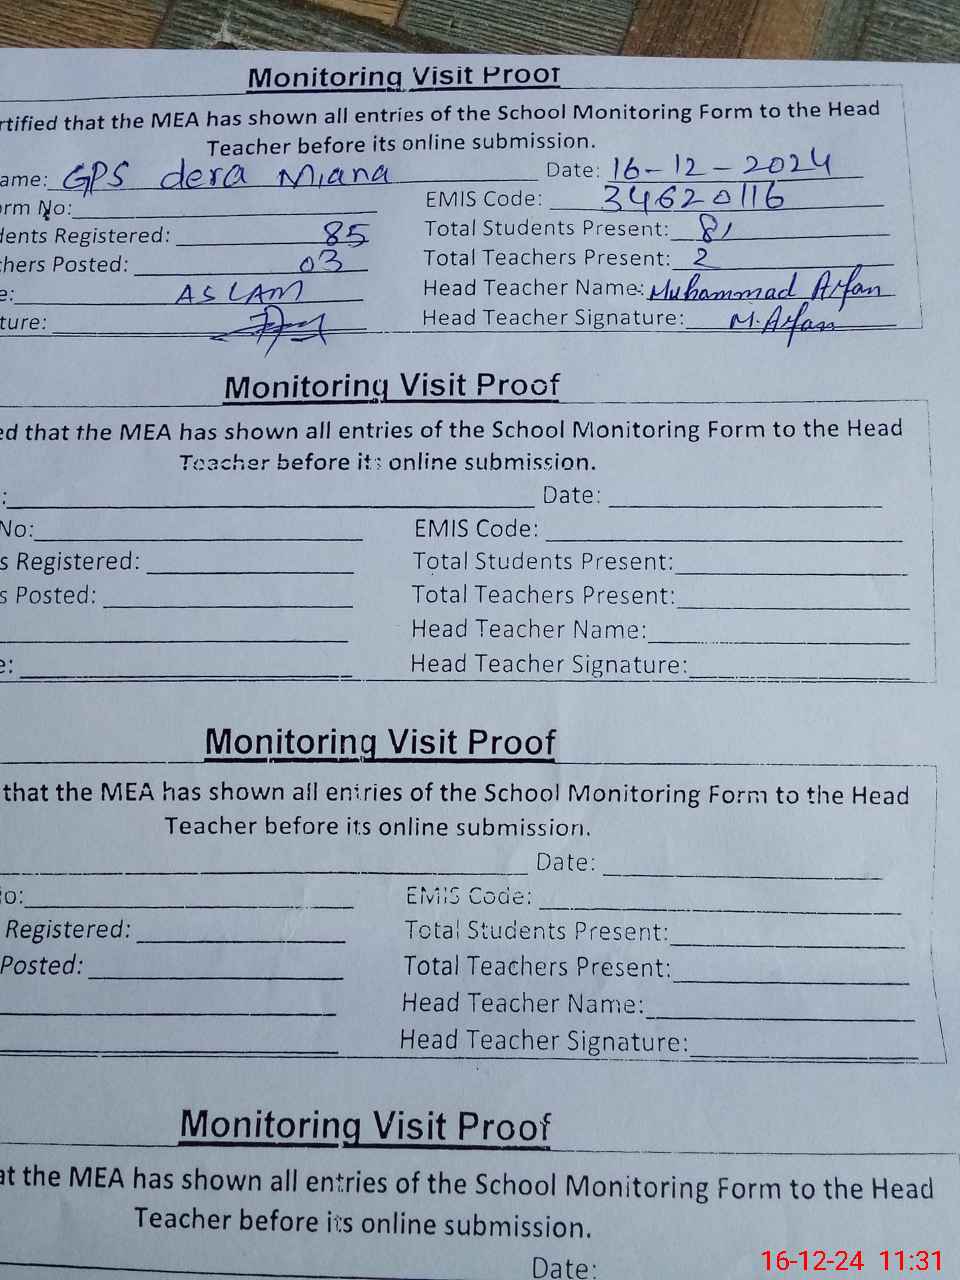 Monitoring Visit Proof
rtified that the MEA has shown all entries of the School Monitoring Form to the Head
Teacher before its online submission.
ame: GPS dera Miana Date: 16-12-2024
orm No: EMIS Code: 34620116
dents Registered: 85 Total Students Present: 81
hers Posted: 03 Total Teachers Present: 2
e: ASLAM Head Teacher Name: Muhammad Arfan
ture: Head Teacher Signature: M. Arfan
Monitoring Visit Proof
ed that the MEA has shown all entries of the School Monitoring Form to the Head
Teacher before its online submission.
: Date:
No: EMIS Code:
s Registered: Total Students Present:
s Posted: Total Teachers Present:
Head Teacher Name:
e: Head Teacher Signature:
Monitoring Visit Proof
that the MEA has shown all entries of the School Monitoring Form to the Head
Teacher before its online submission.
Date:
o: EMIS Code:
Registered: Total Students Present:
Posted: Total Teachers Present:
Head Teacher Name:
Head Teacher Signature:
Monitoring Visit Proof
at the MEA has shown all entries of the School Monitoring Form to the Head
Teacher before its online submission.
Date:
16-12-24 11:31